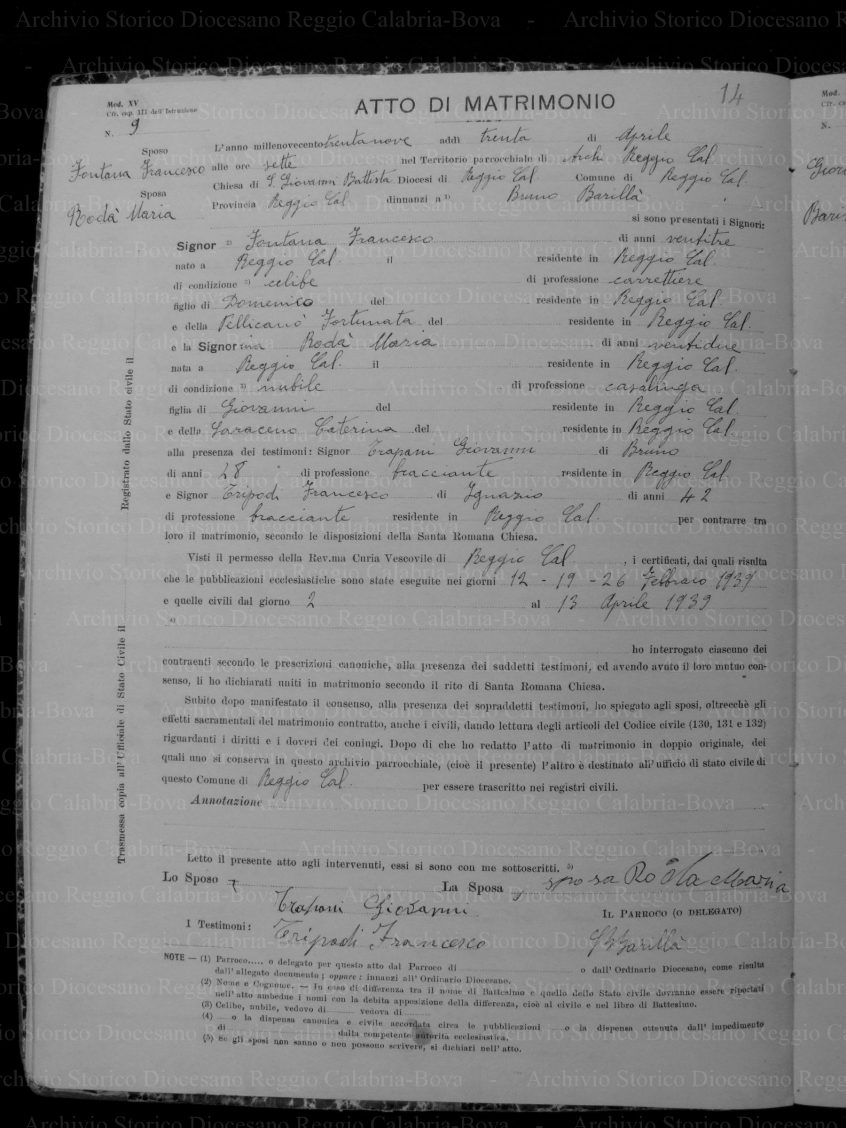 14
Mod. XV
Cfr. cap. III dell'Istruzione
ATTO DI MATRIMONIO
N. 9
Sposo
Fontana Francesco
Sposa
Rodà Maria
L'anno millenovecento trentanove addì trenta di Aprile
alle ore sette nel Territorio parrocchiale di Archi Reggio Cal.
Chiesa di S. Giovanni Battista Diocesi di Reggio Cal. Comune di Reggio Cal.
Provincia Reggio Cal dinnanzi a 1) Bruno Barillà
si sono presentati i Signori:
Signor 2) Fontana Francesco di anni ventitre
nato a Reggio Cal. il residente in Reggio Cal.
di condizione 3) celibe di professione carrettiere
figlio di Domenico del residente in Reggio Cal.
e della Pellicanò Fortunata del residente in Reggio Cal.
e la Signorina Rodà Maria di anni ventidue
nata a Reggio Cal. il residente in Reggio Cal.
di condizione 3) nubile di professione casalinga
figlia di Giovanni del residente in Reggio Cal.
e della Saraceno Caterina del residente in Reggio Cal.
alla presenza dei testimoni: Signor Trapani Giovanni di Bruno
di anni 28 di professione bracciante residente in Reggio Cal
e Signor Tripodi Francesco di Ignazio di anni 42
di professione bracciante residente in Reggio Cal. per contrarre tra
loro il matrimonio, secondo le disposizioni della Santa Romana Chiesa.
Visti il permesso della Rev.ma Curia Vescovile di Reggio Cal , i certificati, dai quali risulta
che le pubblicazioni ecclesiastiche sono state eseguite nei giorni 12 - 19 - 26 Febbraio 1939
e quelle civili dal giorno 2 al 13 Aprile 1939
4)
ho interrogato ciascuno dei
contraenti secondo le prescrizioni canoniche, alla presenza dei suddetti testimoni, ed avendo avuto il loro mutuo con-
senso, li ho dichiarati uniti in matrimonio secondo il rito di Santa Romana Chiesa.
Subito dopo manifestato il consenso, alla presenza dei sopraddetti testimoni, ho spiegato agli sposi, oltrecchè gli
effetti sacramentali del matrimonio contratto, anche i civili, dando lettura degli articoli del Codice civile (130, 131 e 132)
riguardanti i diritti e i doveri dei coniugi. Dopo di che ho redatto l'atto di matrimonio in doppio originale, dei
quali uno si conserva in questo archivio parrocchiale, (cioè il presente) l'altro è destinato all'ufficio di stato civile di
questo Comune di Reggio Cal. per essere trascritto nei registri civili.
Annotazione
Letto il presente atto agli intervenuti, essi si sono con me sottoscritti. 5)
Lo Sposo La Sposa sposa Rodà Maria
Trapani Giovanni
IL PARROCO (O DELEGATO)
I Testimoni:
Tripodi Francesco Barillà
NOTE — (1) Parroco..... o delegato per questo atto dal Parroco di o dall'Ordinario Diocesano, come risulta
dall'allegato documento; oppure: innanzi all'Ordinario Diocesano.
(2) Nome e Cognome. — In caso di differenza tra il nome di Battesimo e quello dello Stato civile dovranno essere riportati
nell'atto ambedue i nomi con la debita apposizione della differenza, cioè al civile e nel libro di Battesimo.
(3) Celibe, nubile, vedovo di vedova di
(4) .... o la dispensa canonica e civile accordata circa le pubblicazioni o la dispensa ottenuta dall'impedimento
di dalla competente autorità ecclesiastica.
(5) Se gli sposi non sanno o non possono scrivere, si dichiari nell'atto.
Registrato dallo Stato civile il
Trasmessa copia all'Ufficiale di Stato Civile il
Mod.
N.
Archivio Storico Diocesano Reggio Calabria-Bova